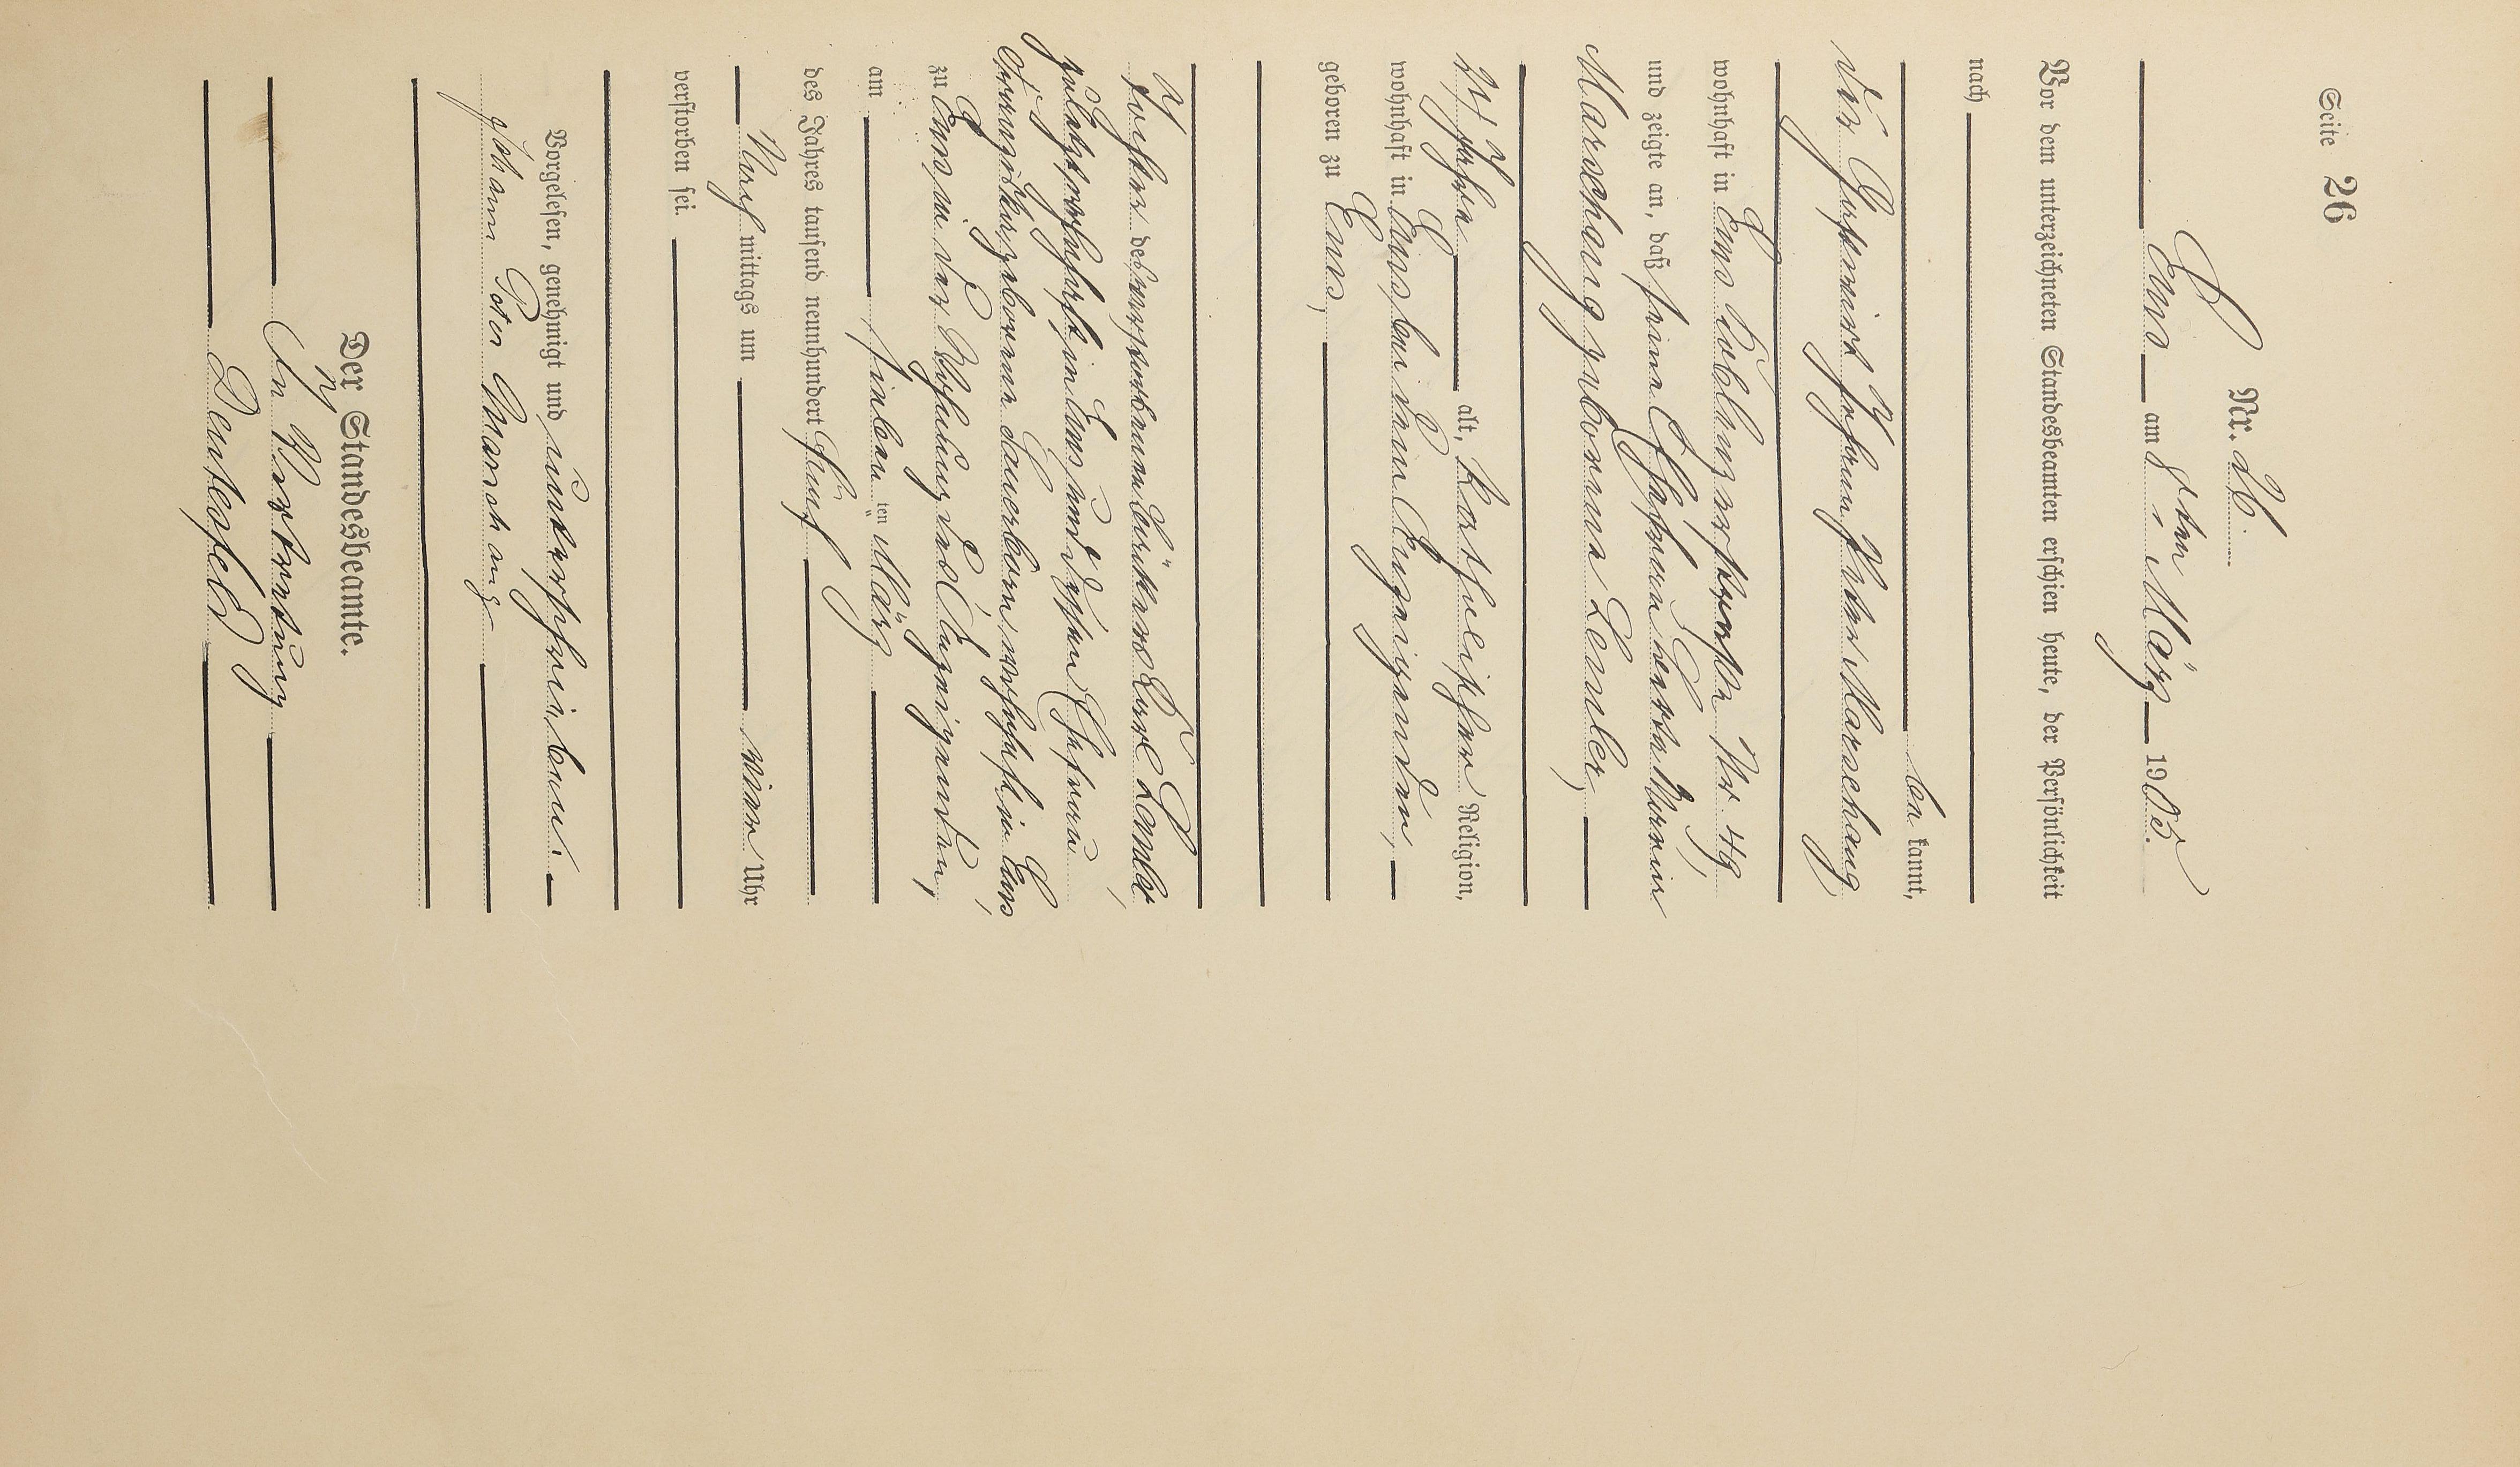 Seite 26
Nr. 26.
Ems am 8ten März 1905.
Vor dem unterzeichneten Standesbeamten erschien heute, der Persönlichkeit
nach
be kannt,
der Johann Peter Marschang,
wohnhaft in Ems Nr. 49,
und zeigte an, daß seine Ehefrau
Marschang geborene Lemler,
24 Jahre alt, katholischer Religion,
wohnhaft in Ems bei ihm Anzeigenden,
geboren zu Ems,
Tochter des verstorbenen Karl Lemler,
zuletzt wohnhaft in Ems und dessen Ehefrau
geborene wohnhaft in Ems,
zu Ems in der Wohnung des Anzeigenden,
am sieben ten März
des Jahres tausend neunhundert fünf
Nach mittags um vier Uhr
verstorben sei.
Vorgelesen, genehmigt und unterschrieben.
Johann Peter Marschang
Der Standesbeamte.
In Vertretung